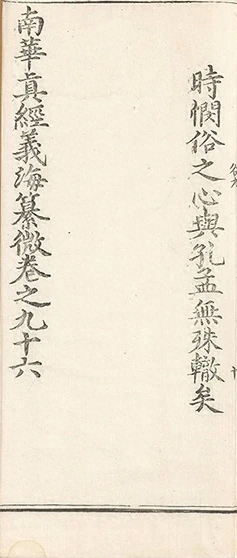 時憫俗之心與孔孟無殊轍矣
南華真經義海纂微卷之九十六